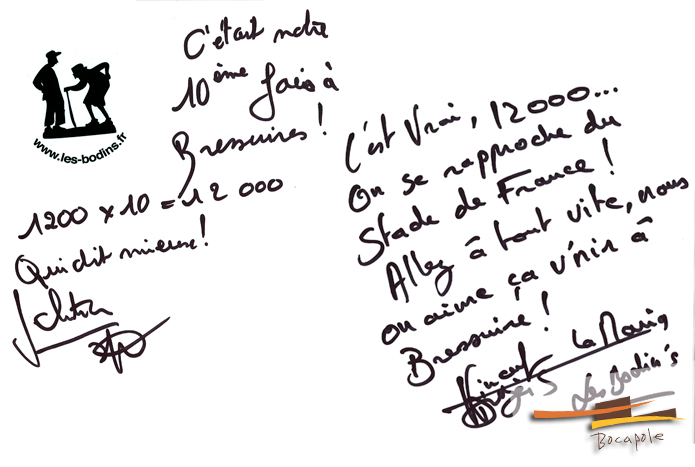 www.les-bodins.fr
C'était notre
10ème fois à
Bressuires !
1200 x 10 = 12 000
Qui dit mieux !
C'est Vrai, 12000...
On se rapproche du
Stade de France !
Allez à tout vite, nous
on aime ça v'nir à
Bressuire !
Vincent La Maria
Les Bodin's
Bocapole